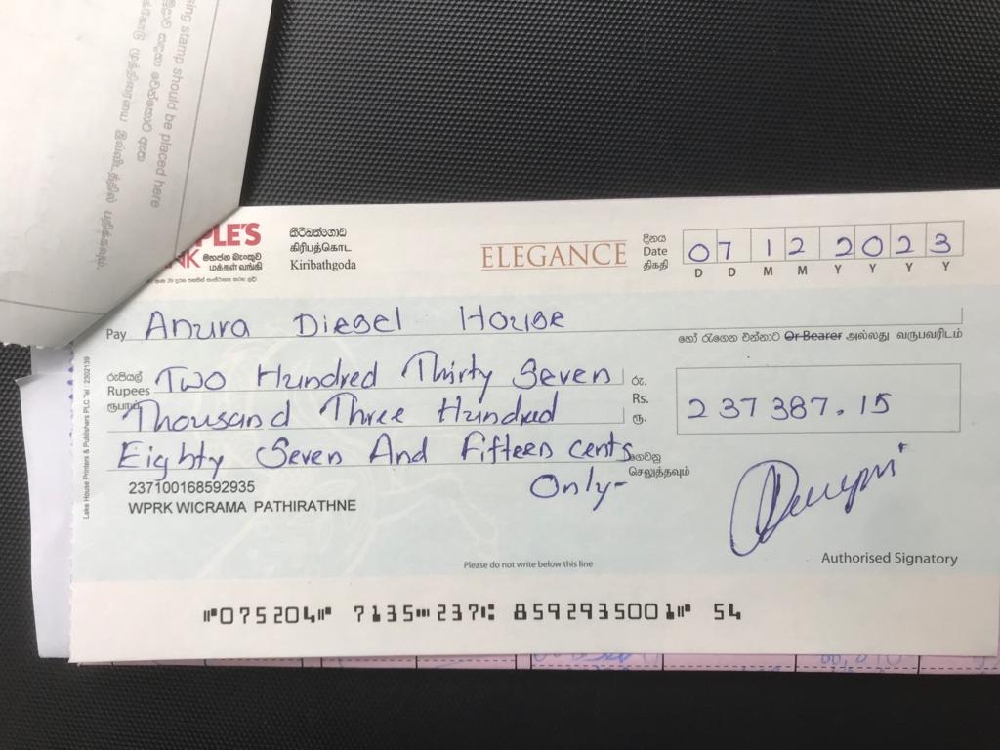 sing stamp should be placed here
PLE'S
මහජන බැංකුව
மக்கள் வங்கி
කිරිබත්ගොඩ
கிரிபத்கொட
Kiribathgoda
ELEGANCE
දිනය
Date
திகதி
07 12 2023
D D M M Y Y Y Y
Pay Anura Diesel House
හෝ රැගෙන එන්නාට Or Bearer அல்லது வருபவரிடம்
රුපියල්
Rupees
ரூபாய்
Two Hundred Thirty Seven
Thousand Three Hundred
Eighty Seven And Fifteen cents
Only-
රු.
Rs.
ரூ.
237387.15
ගෙවනු
செலுத்தவும்
237100168592935
WPRK WICRAMA PATHIRATHNE
Authorised Signatory
Please do not write below this line
⑈075204⑈ 7135⑉237⑆ 8592935001⑈ 54
Lake House Printers & Publishers PLC Tel 2302139